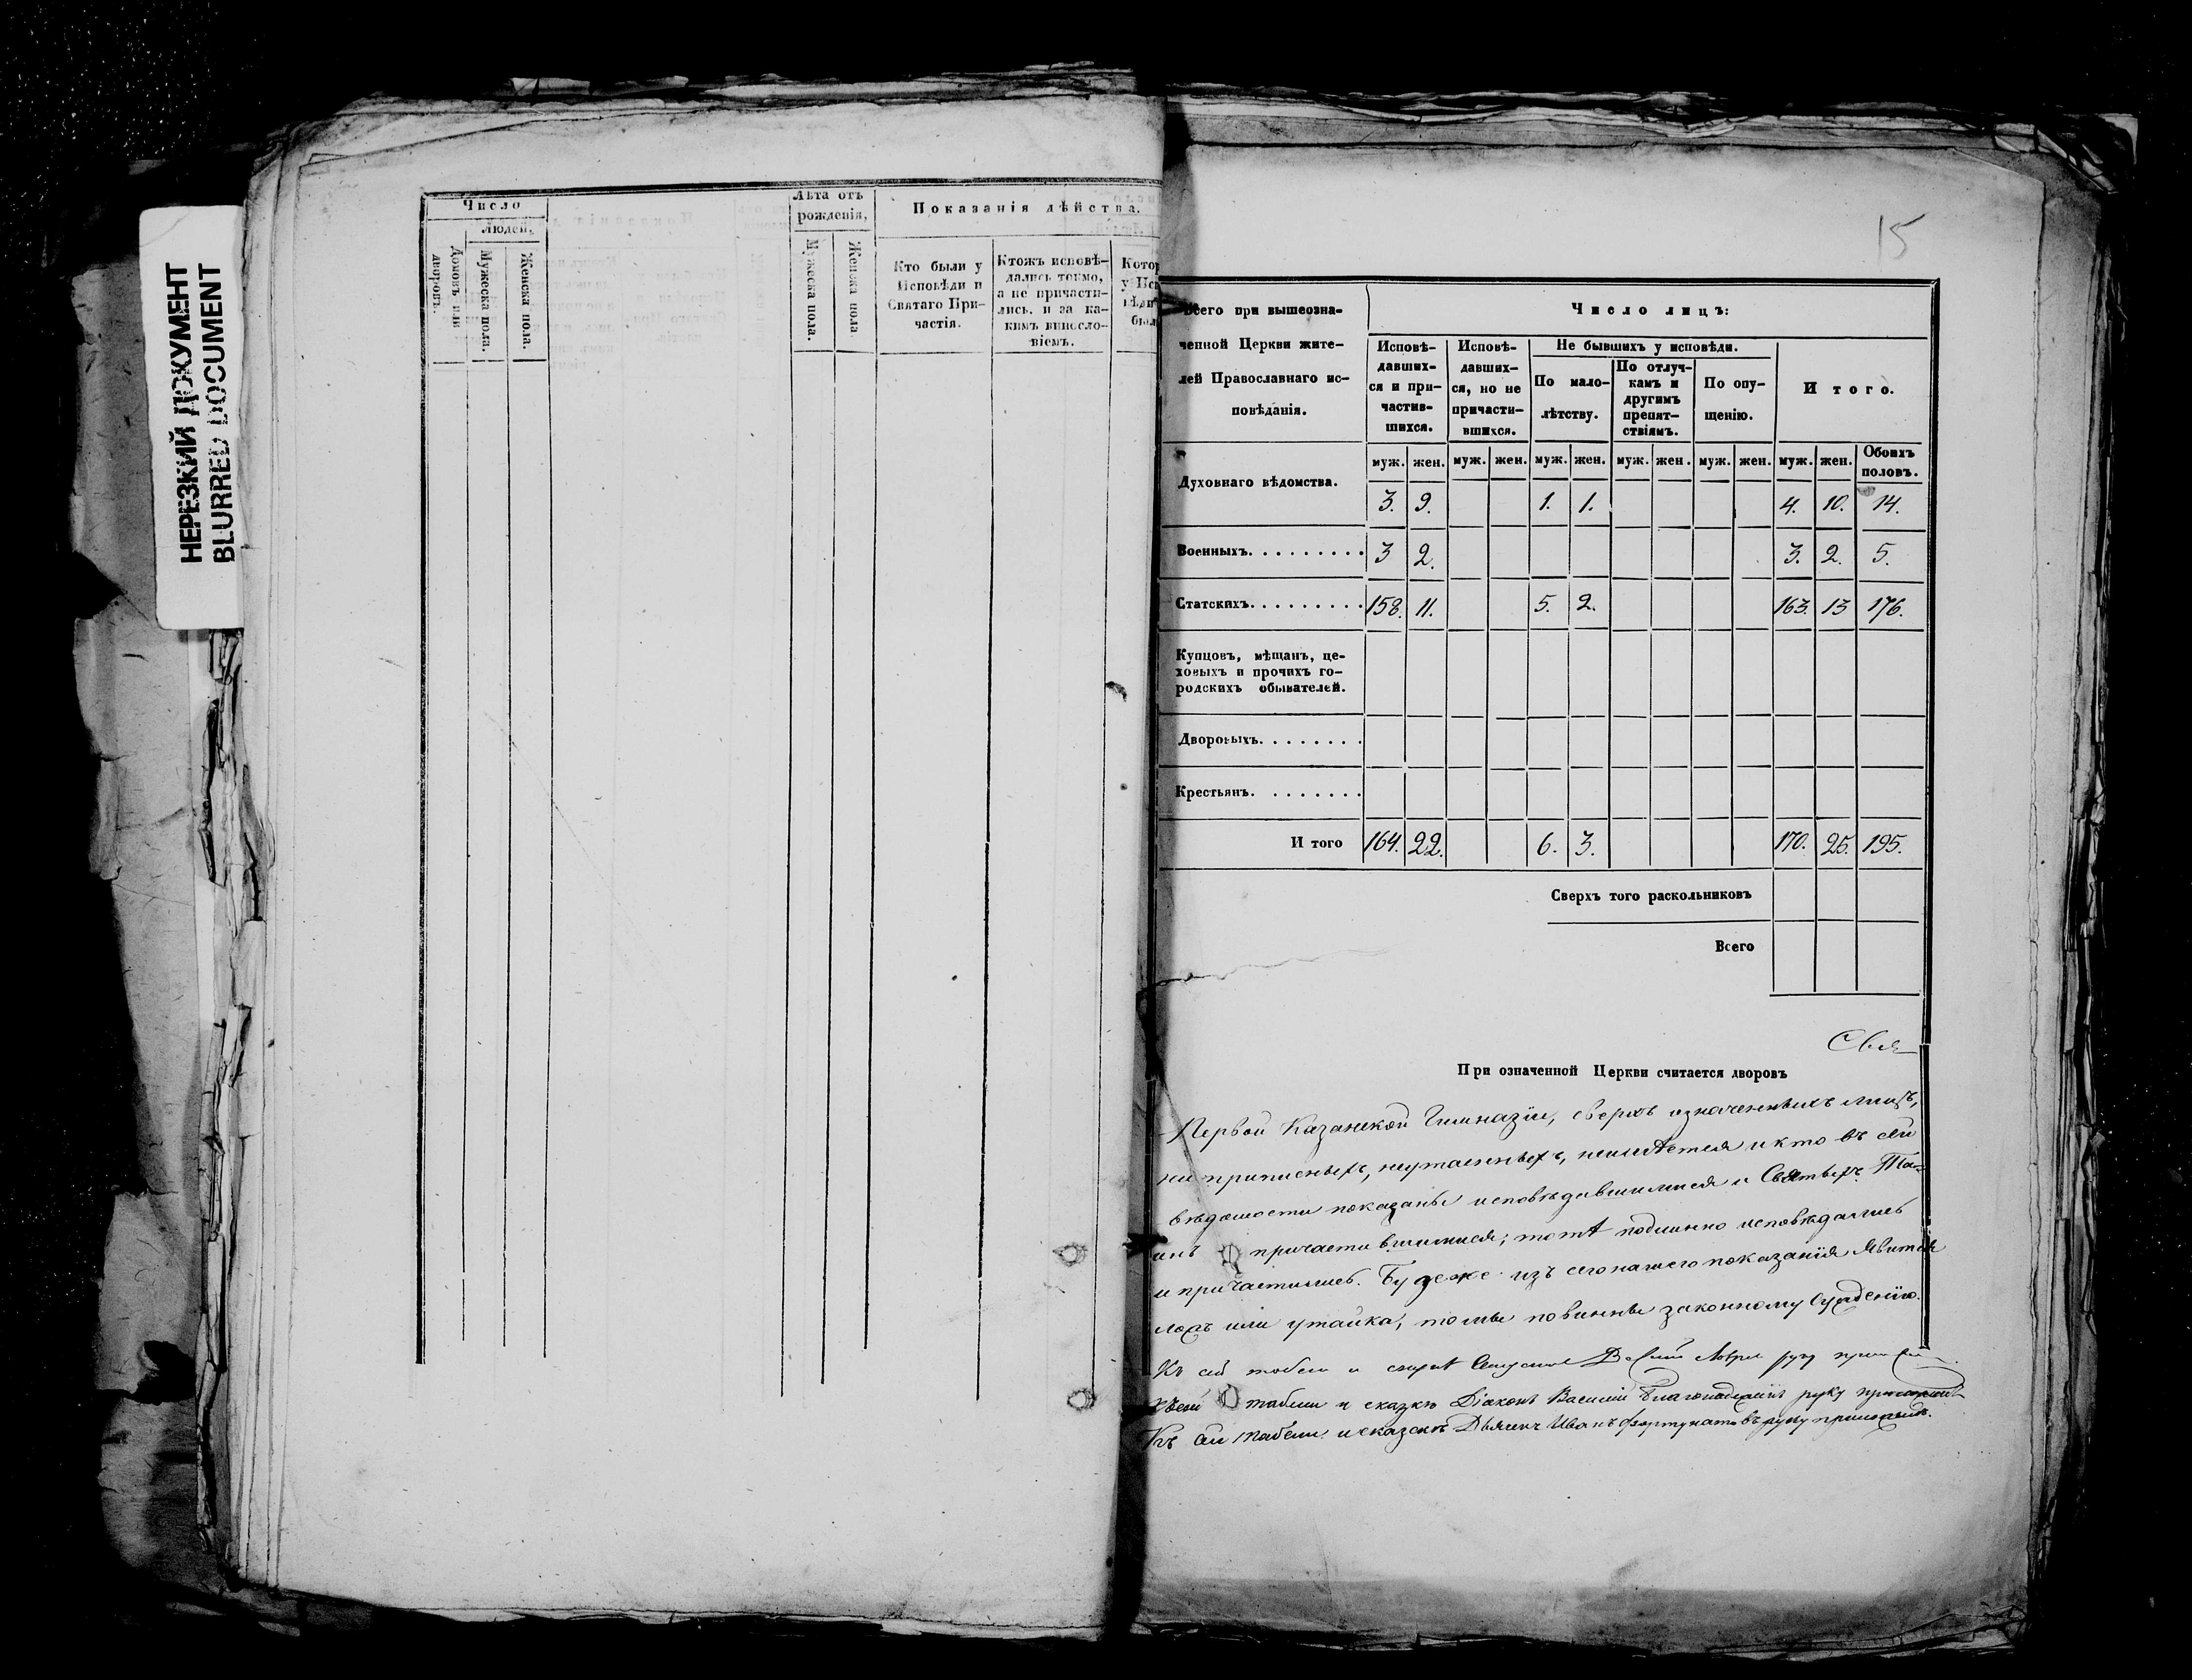 НЕРЕЗКИЙ ДОКУМЕНТ
BLURRED DOCUMENT
Число
Людей,
Домовъ или дворовъ.
Мужеска пола.
Женска пола.
Лѣта отъ рожденія,
Мужеска пола.
Женска пола
Показанія дѣйства.
Кто были у
Исповѣди и
Святаго При-
частія.
Ктожъ исповѣ-
дались токмо,
а не причасти-
лись, и за ка-
кимъ виносло-
віемъ.
15
Всего при вышеозна-
ченной Церкви жите-
лей Православнаго ис-
повѣданія.
Число лицъ:
Исповѣ-
давших-
ся и при-
частив-
шихся.
Исповѣ-
давших-
ся, но не
причасти-
вшихся.
Не бывшихъ у исповѣди.
По мало-
лѣтству.
По отлуч-
камъ и
другимъ
препят-
ствіямъ.
По опу-
щенію.
Итого.
муж. жен. муж. жен. муж. жен. муж. жен. муж. жен. муж. жен. Обоихъ половъ.
Духовнаго вѣдомства. 3. 9. 1. 1. 4. 10. 14.
Военныхъ. 3 2. 3. 2. 5.
Статскихъ. 158. 11. 5. 2. 163. 13 176.
Купцовъ, мѣщанъ, це-
ховыхъ и прочихъ го-
родскихъ обывателей.
Дворовыхъ.
Крестьянъ.
И того 164. 22. 6. 3. 170. 25. 195.
Сверхъ того раскольниковъ
Всего
При означенной Церкви считается дворовъ
Первой Казанской Гимназіи, сверхъ означенныхъ лицъ,
ни приписныхъ, ни утаенныхъ, неимѣется и кто въ сей
вѣдомости показаны исповѣдавшимися и Святыхъ Та-
инъ причастившимися; тотѣ подлинно исповѣдались
и причастились. Буде же изъ сего нашего показанія явится
ложь или утайка, то мы повинны законному сужденію.
Къ сей табели и
Къ сей табели и сказкѣ Діаконъ Василій руку приложилъ
Къ сей табели и сказкѣ Дьячекъ Иванъ Фортунатовъ руку приложилъ.